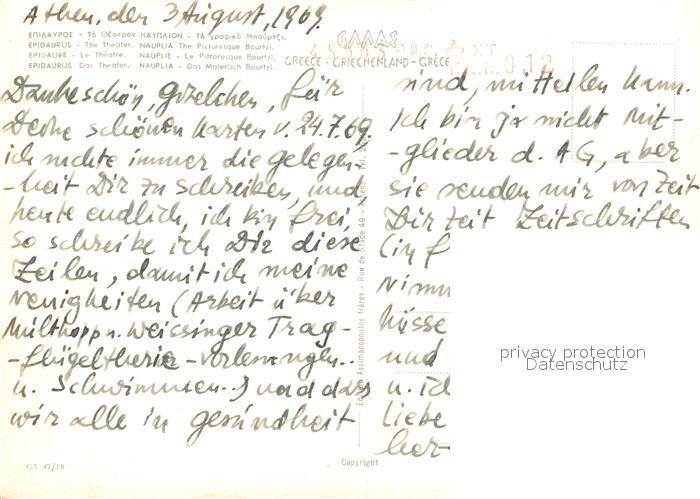 Athen, den 3 August, 1969.
ΕΠΙΔΑΥΡΟΣ - Τὸ Θέατρον ΝΑΥΠΛΙΟΝ - Τὸ γραφικὸ Μπούρτζι.
EPIDAURUS - The Theater. NAUPLIA The Picturesque Bourtzi.
EPIDAURE - Le Théatre. NAUPLIE - Le Pittoresque Bourtzi.
EPIDAURUS - Das Theater. NAUPLIA - Das Malerisch Bourtzi.
ΕΛΛΑΣ
GREECE - GRIECHENLAND - GRÈCE
Dankeschön, Gretelchen, für
Deine schönen Karten v. 24.7.69.
ich möchte immer die gelegen-
-heit Dir zu schreiben, und,
heute endlich, ich bin frei,
so schreibe ich Dir diese
Zeilen, damit ich meine
neuigkeiten (Arbeit über
Multhopp u. Weissinger Trag-
-flügeltheorie - vorlesungen..
u. Schwimmen..) und dass
wir alle in gesundheit
sind, mitteilen kann.
Ich bin ja nicht Mit-
-glieder d. AG, aber
sie senden mir von Zeit
Zeit Zeitschriften
(in f
Nimm
Küsse
und
u. ich
liebe
her-
GA 47/19
Copyright
privacy protection
Datenschutz